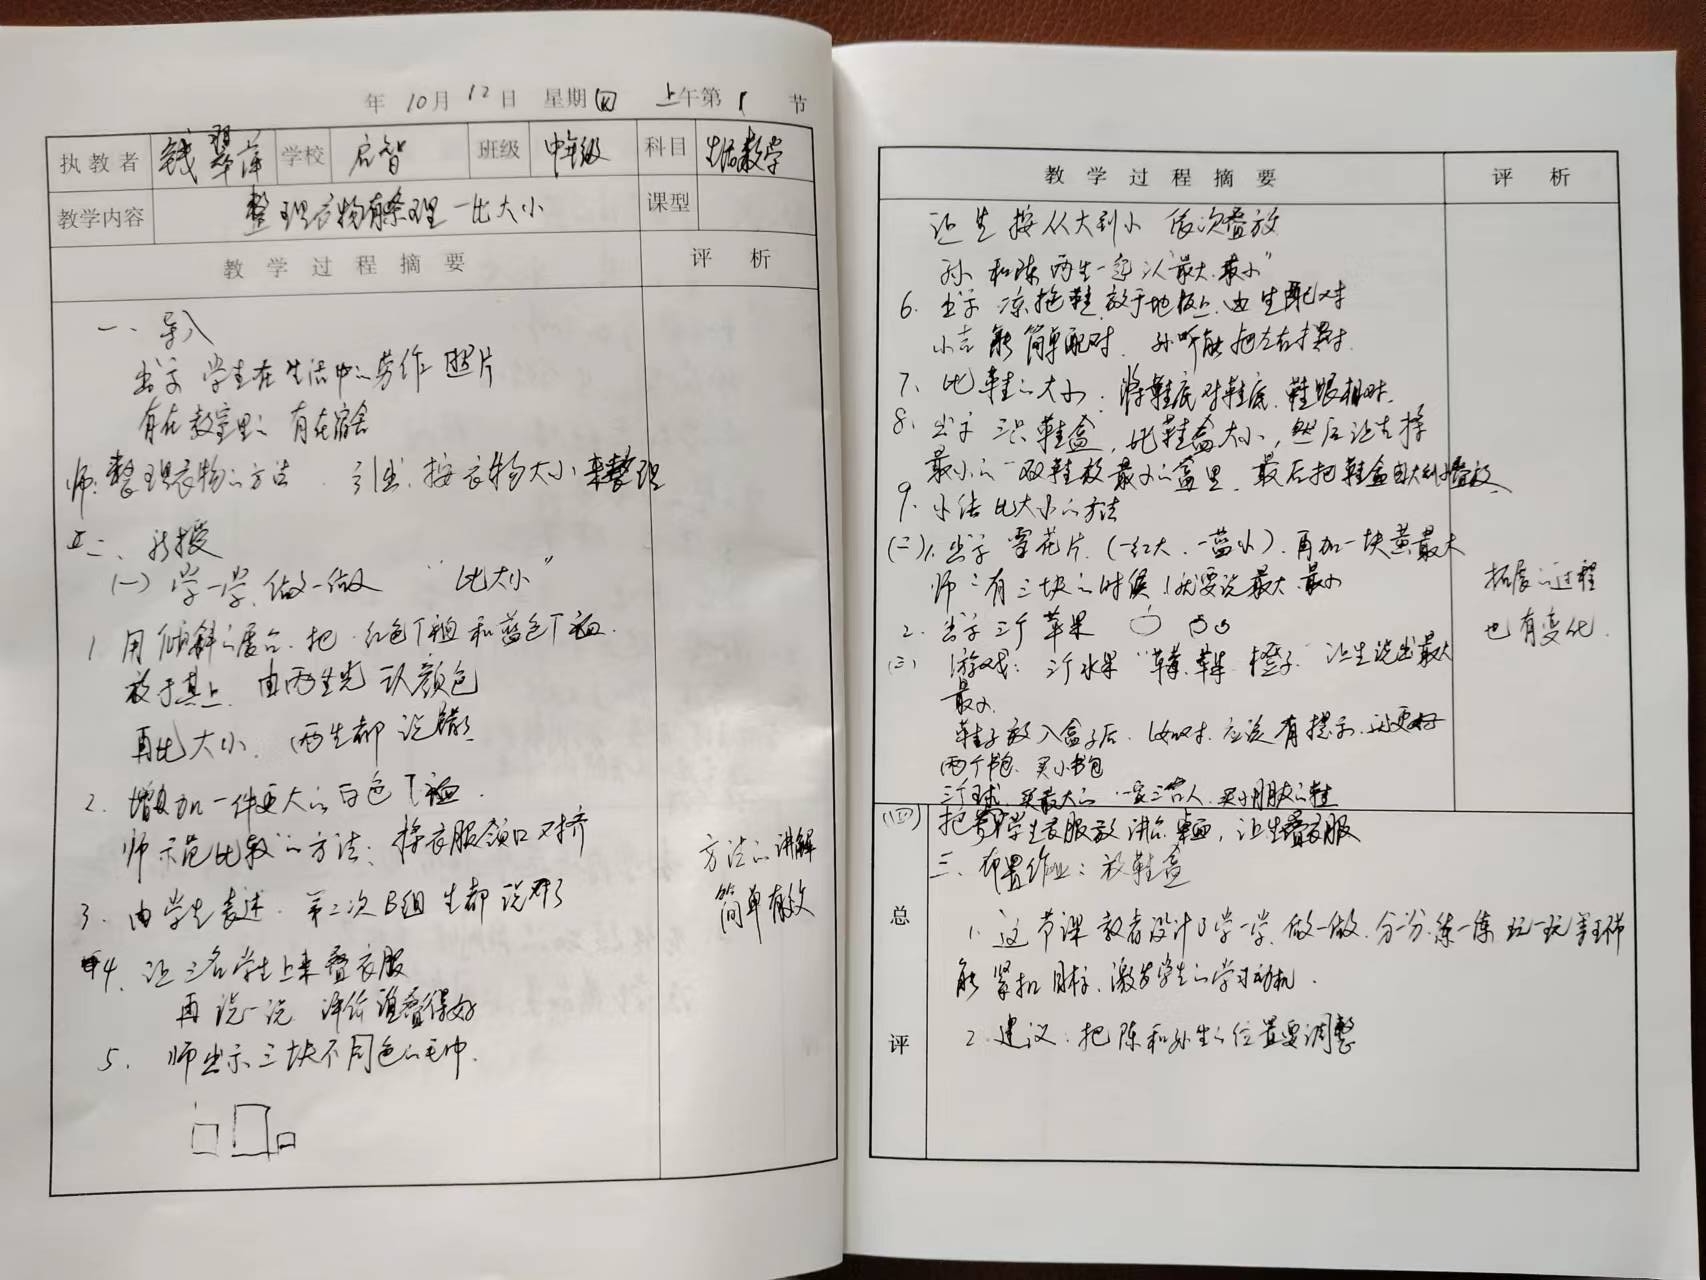 年 10月 12日 星期四 上午第 1 节
执教者 钱翠萍 学校 启智 班级 中年级 科目 生活数学
教学内容 整理衣物有条理 一比大小 课型
教学过程摘要 评析
一、导入
出示 学生在生活中的劳作 照片
有在教室里的 有在宿舍
师:整理衣物的方法 . 引出:按衣物大小来整理
二、新授
(一) 学一学、做一做 “比大小”
1. 用倾斜的展台.把.红色T恤和蓝色T恤.
放于其上. 由两生先认颜色
再比大小. 两生都说错了
2. 增加一件更大的白色T恤.
师示范比较的方法:将衣服领口对齐
方法的讲解
简单有效
3. 由学生表述. 第二次B组生都说对了
4. 让三名学生上来叠衣服
再说一说 评价谁叠得好
5. 师出示三块不同色的毛巾.
教学过程摘要 评析
让生按从大到小 依次叠放
孙和陈两生一起认“最大.最小”
6. 出示 凉拖鞋.放于地板上.由生配对
能简单配对. 孙昕能把左右摆对.
7. 比鞋的大小:将鞋底对鞋底.鞋跟相对.
8. 出示 三只鞋盒,比鞋盒大小,然后让生择
最小的一双鞋放最小的盒里.最后把鞋盒由大到小叠放.
9. 小结比大小的方法
(二)1. 出示 雪花片.(一红大.一蓝小).再加一块黄最大
师:有三块的时候,就要说最大.最小
拓展的过程
也有变化.
2. 出示三个苹果
(三) 游戏:三个水果“草莓.苹果.橙子”让生说出最大
最小.
鞋子放入盒子后. 应该有提示.还更好
两个书包.买小书包
三个球.买最大的. 一家三口人.买的鞋
(四) 把学生衣服放讲台桌面,让生叠衣服
三、布置作业:放鞋盒
总评
1. 这节课教者设计了学一学.做一做.分一分.练一练.玩一玩等环节
能紧扣目标.激发学生的学习动机.
2. 建议:把陈和孙生的位置要调整